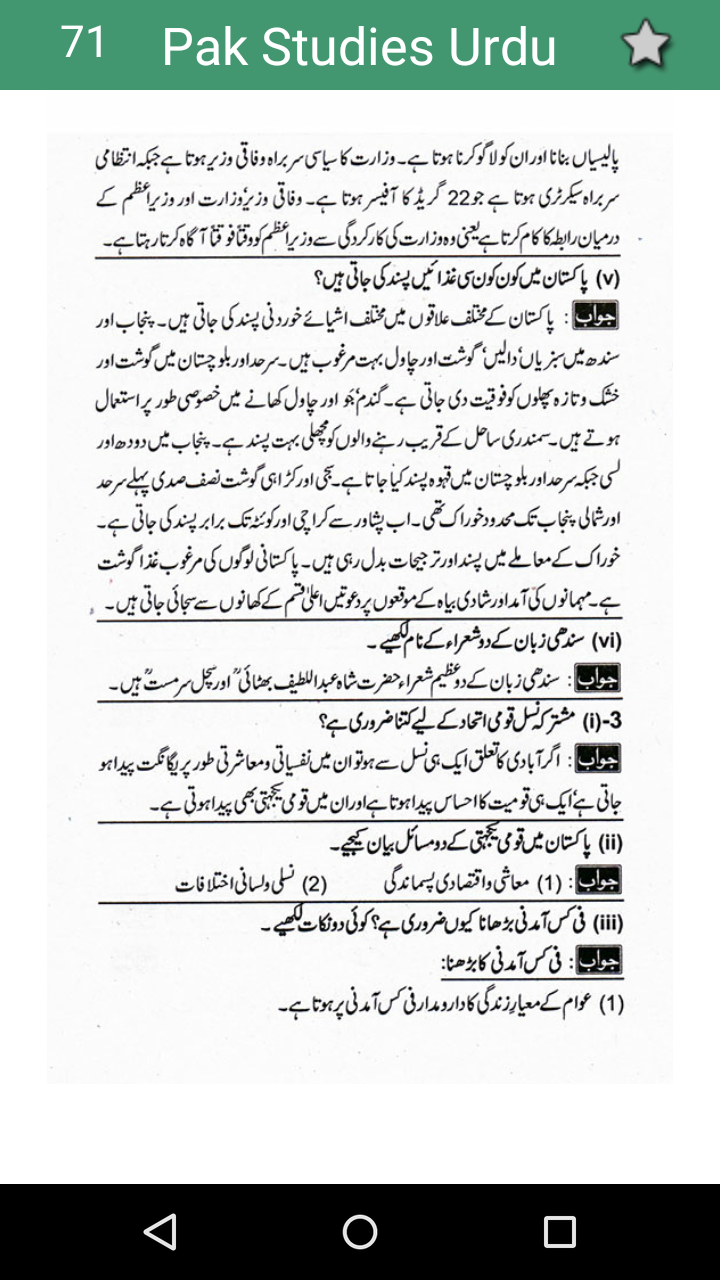 71 Pak Studies Urdu
پالیسیاں بنانا اور ان کو لاگو کرنا ہوتا ہے۔ وزارت کا سیاسی سربراہ وفاقی وزیر ہوتا ہے جبکہ انتظامی
سربراہ سیکرٹری ہوتا ہے جو 22 گریڈ کا آفیسر ہوتا ہے۔ وفاقی وزیر، وزارت اور وزیراعظم کے
درمیان رابطہ کا کام کرتا ہے یعنی وہ وزارت کی کارکردگی سے وزیراعظم کو وقتاً فوقتاً آگاہ کرتا رہتا ہے۔
(v) پاکستان میں کون کون سی غذائیں پسند کی جاتی ہیں؟
جواب : پاکستان کے مختلف علاقوں میں مختلف اشیائے خوردنی پسند کی جاتی ہیں۔ پنجاب اور
سندھ میں سبزیاں، دالیں، گوشت اور چاول بہت مرغوب ہیں۔ سرحد اور بلوچستان میں گوشت اور
خشک و تازہ پھلوں کو فوقیت دی جاتی ہے۔ گندم، جَو اور چاول کھانے میں خصوصی طور پر استعمال
ہوتے ہیں۔ سمندری ساحل کے قریب رہنے والوں کو مچھلی بہت پسند ہے۔ پنجاب میں دودھ اور
لسی جبکہ سرحد اور بلوچستان میں قہوہ پسند کیا جاتا ہے۔ سجی اور کڑاہی گوشت نصف صدی پہلے سرحد
اور شمالی پنجاب تک محدود خوراک تھی۔ اب پشاور سے کراچی اور کوئٹہ تک برابر پسند کی جاتی ہے۔
خوراک کے معاملے میں پسند اور ترجیحات بدل رہی ہیں۔ پاکستانی لوگوں کی مرغوب غذا گوشت
ہے۔ مہمانوں کی آمد اور شادی بیاہ کے موقعوں پر دعوتیں اعلیٰ قسم کے کھانوں سے سجائی جاتی ہیں۔
(vi) سندھی زبان کے دو شعراء کے نام لکھیے۔
جواب : سندھی زبان کے دو عظیم شعراء حضرت شاہ عبداللطیف بھٹائیؒ اور سچل سرمستؒ ہیں۔
3-(i) مشترکہ نسل قومی اتحاد کے لیے کتنا ضروری ہے؟
جواب : اگر آبادی کا تعلق ایک ہی نسل سے ہو تو ان میں نفسیاتی و معاشرتی طور پر یگانگت پیدا ہو
جاتی ہے، ایک ہی قومیت کا احساس پیدا ہوتا ہے اور ان میں قومی یکجہتی بھی پیدا ہوتی ہے۔
(ii) پاکستان میں قومی یکجہتی کے دو مسائل بیان کیجیے۔
جواب : (1) معاشی و اقتصادی پسماندگی (2) نسلی و لسانی اختلافات
(iii) فی کس آمدنی بڑھانا کیوں ضروری ہے؟ کوئی دو نکات لکھیے۔
جواب : فی کس آمدنی کا بڑھنا:
(1) عوام کے معیارِ زندگی کا دارومدار فی کس آمدنی پر ہوتا ہے۔